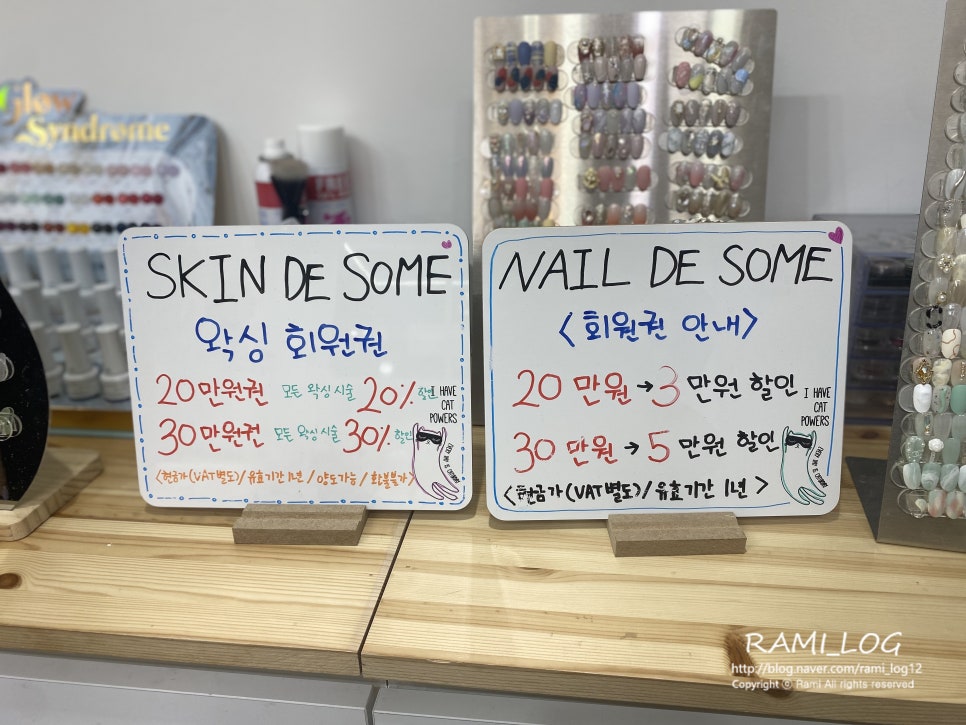 Glow
Syndrome
SKIN DE SOME
왁싱 회원권
20만원권 모든 왁싱 시술 20% 할인
30만원권 모든 왁싱 시술 30% 할인
I HAVE
CAT
POWERS
(현금가(VAT별도)/유효기간 1년/양도가능/환불불가)
NAIL DE SOME
<회원권 안내>
20 만원→3 만원 할인
30 만원→5 만원 할인
I HAVE
CAT
POWERS
<현금가(VAT별도)/유효기간 1년>
RAMI_LOG
http://blog.naver.com/rami_log12
Copyright ⓒ Rami All rights reserved